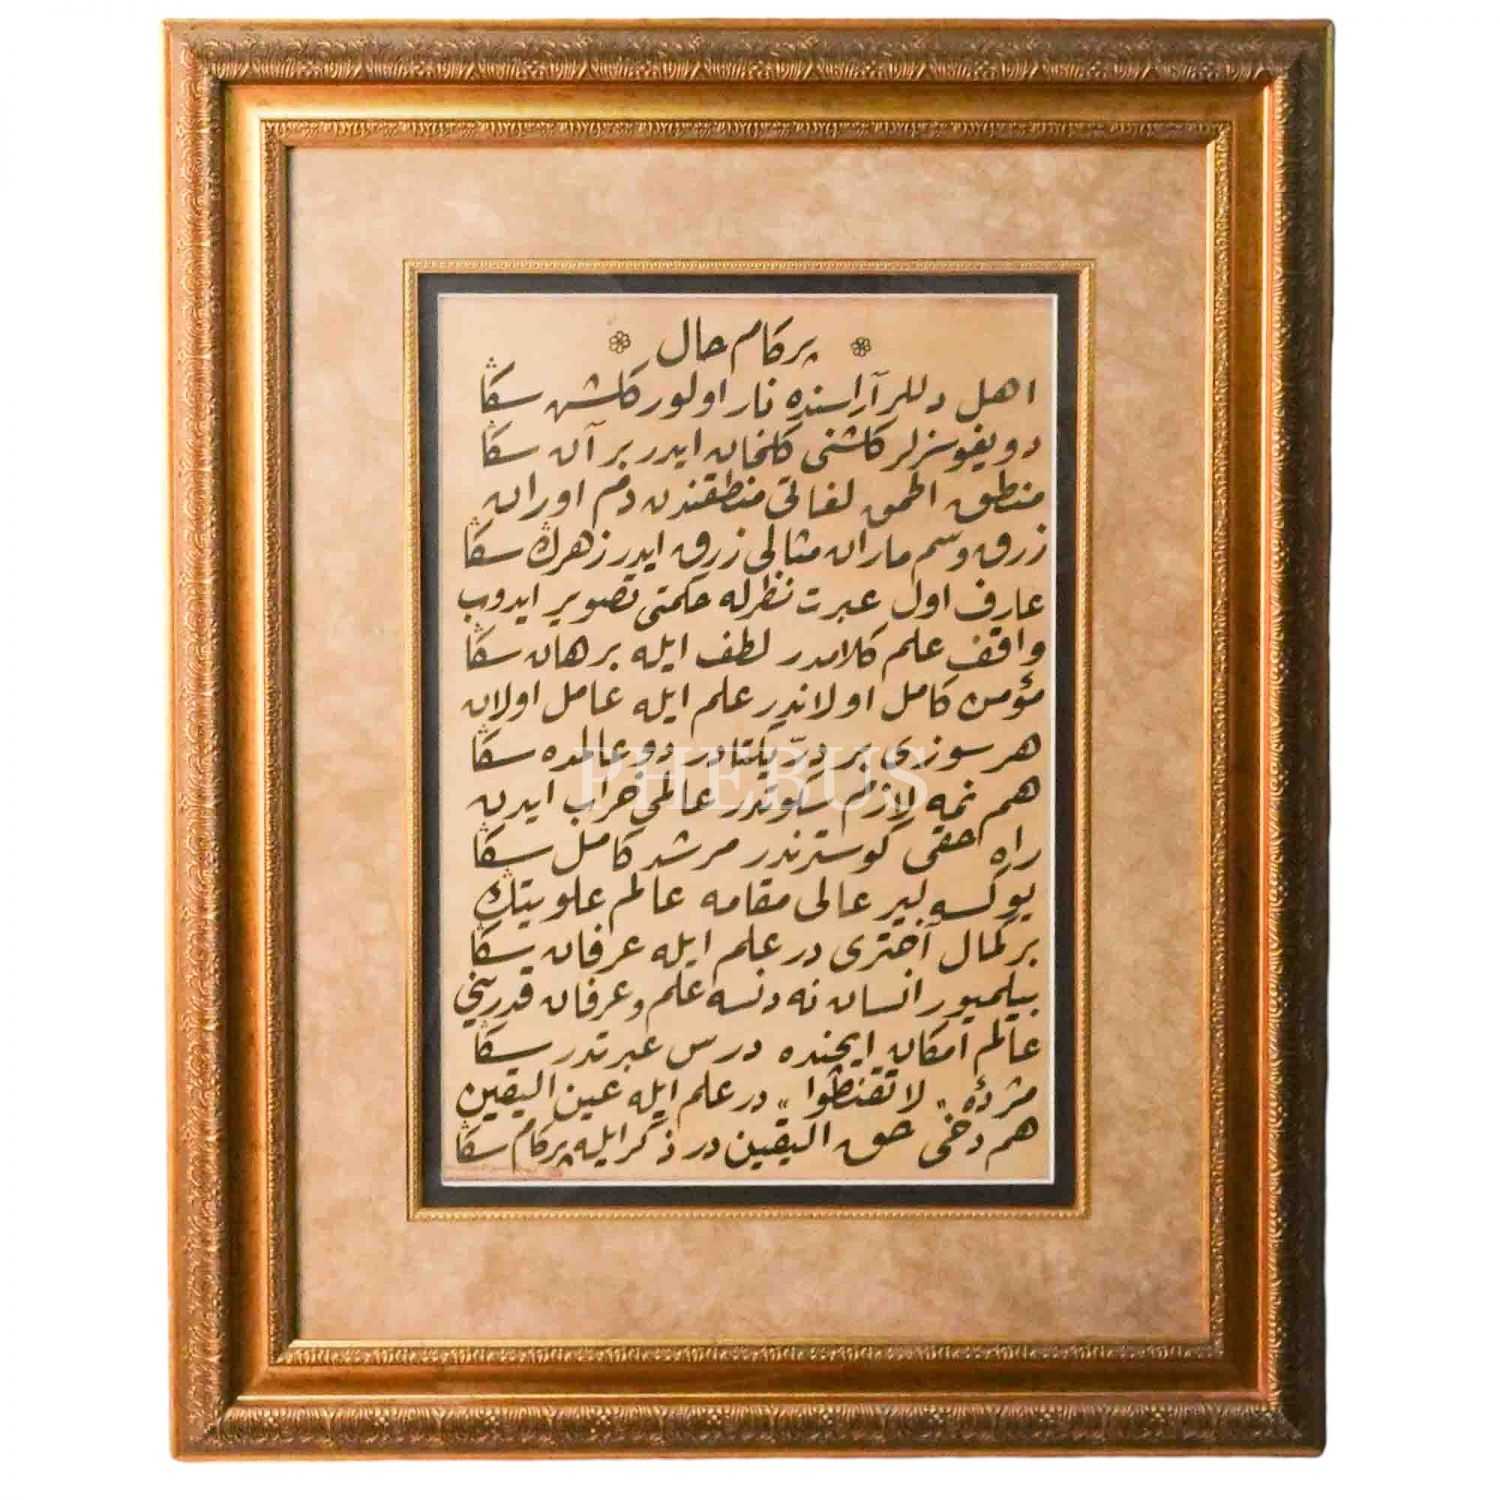 پركام حال
اهل دللر آراسنده نار اولور كلشن سكا
دويغوسزلر كلشنى كلخان ايدر بر آن سكا
منطق احمق لغاتى منطقندن دم اوران
زرق وسم ماران مثالى زرق ايدر زهرڭ سكا
عارف اول عبرت نظرله حكمتى تصوير ايدوب
واقف علم كلامدر لطف ايله برهان سكا
مؤمن كامل اولاندر علم ايله عامل اولان
هر سوزى بر درّ يكتادر دو عالمده سكا
هم نمه لازم سكوندر عالمى خراب ايدن
راه حقى كوسترندر مرشد كامل سكا
يوكسه لير عالى مقامه عالم علويتڭ
بر كمال آختری در علم ايله عرفان سكا
بيلميور انسان نه دنسه علم وعرفان قدرينى
عالم امكان ايچنده درس عبرتدر سكا
مژدهٔ „ لا تقنطوا „ در علم ايله عين اليقين
هم دخى حق اليقين در ذكر ايله پركام سكا
PHEBUS